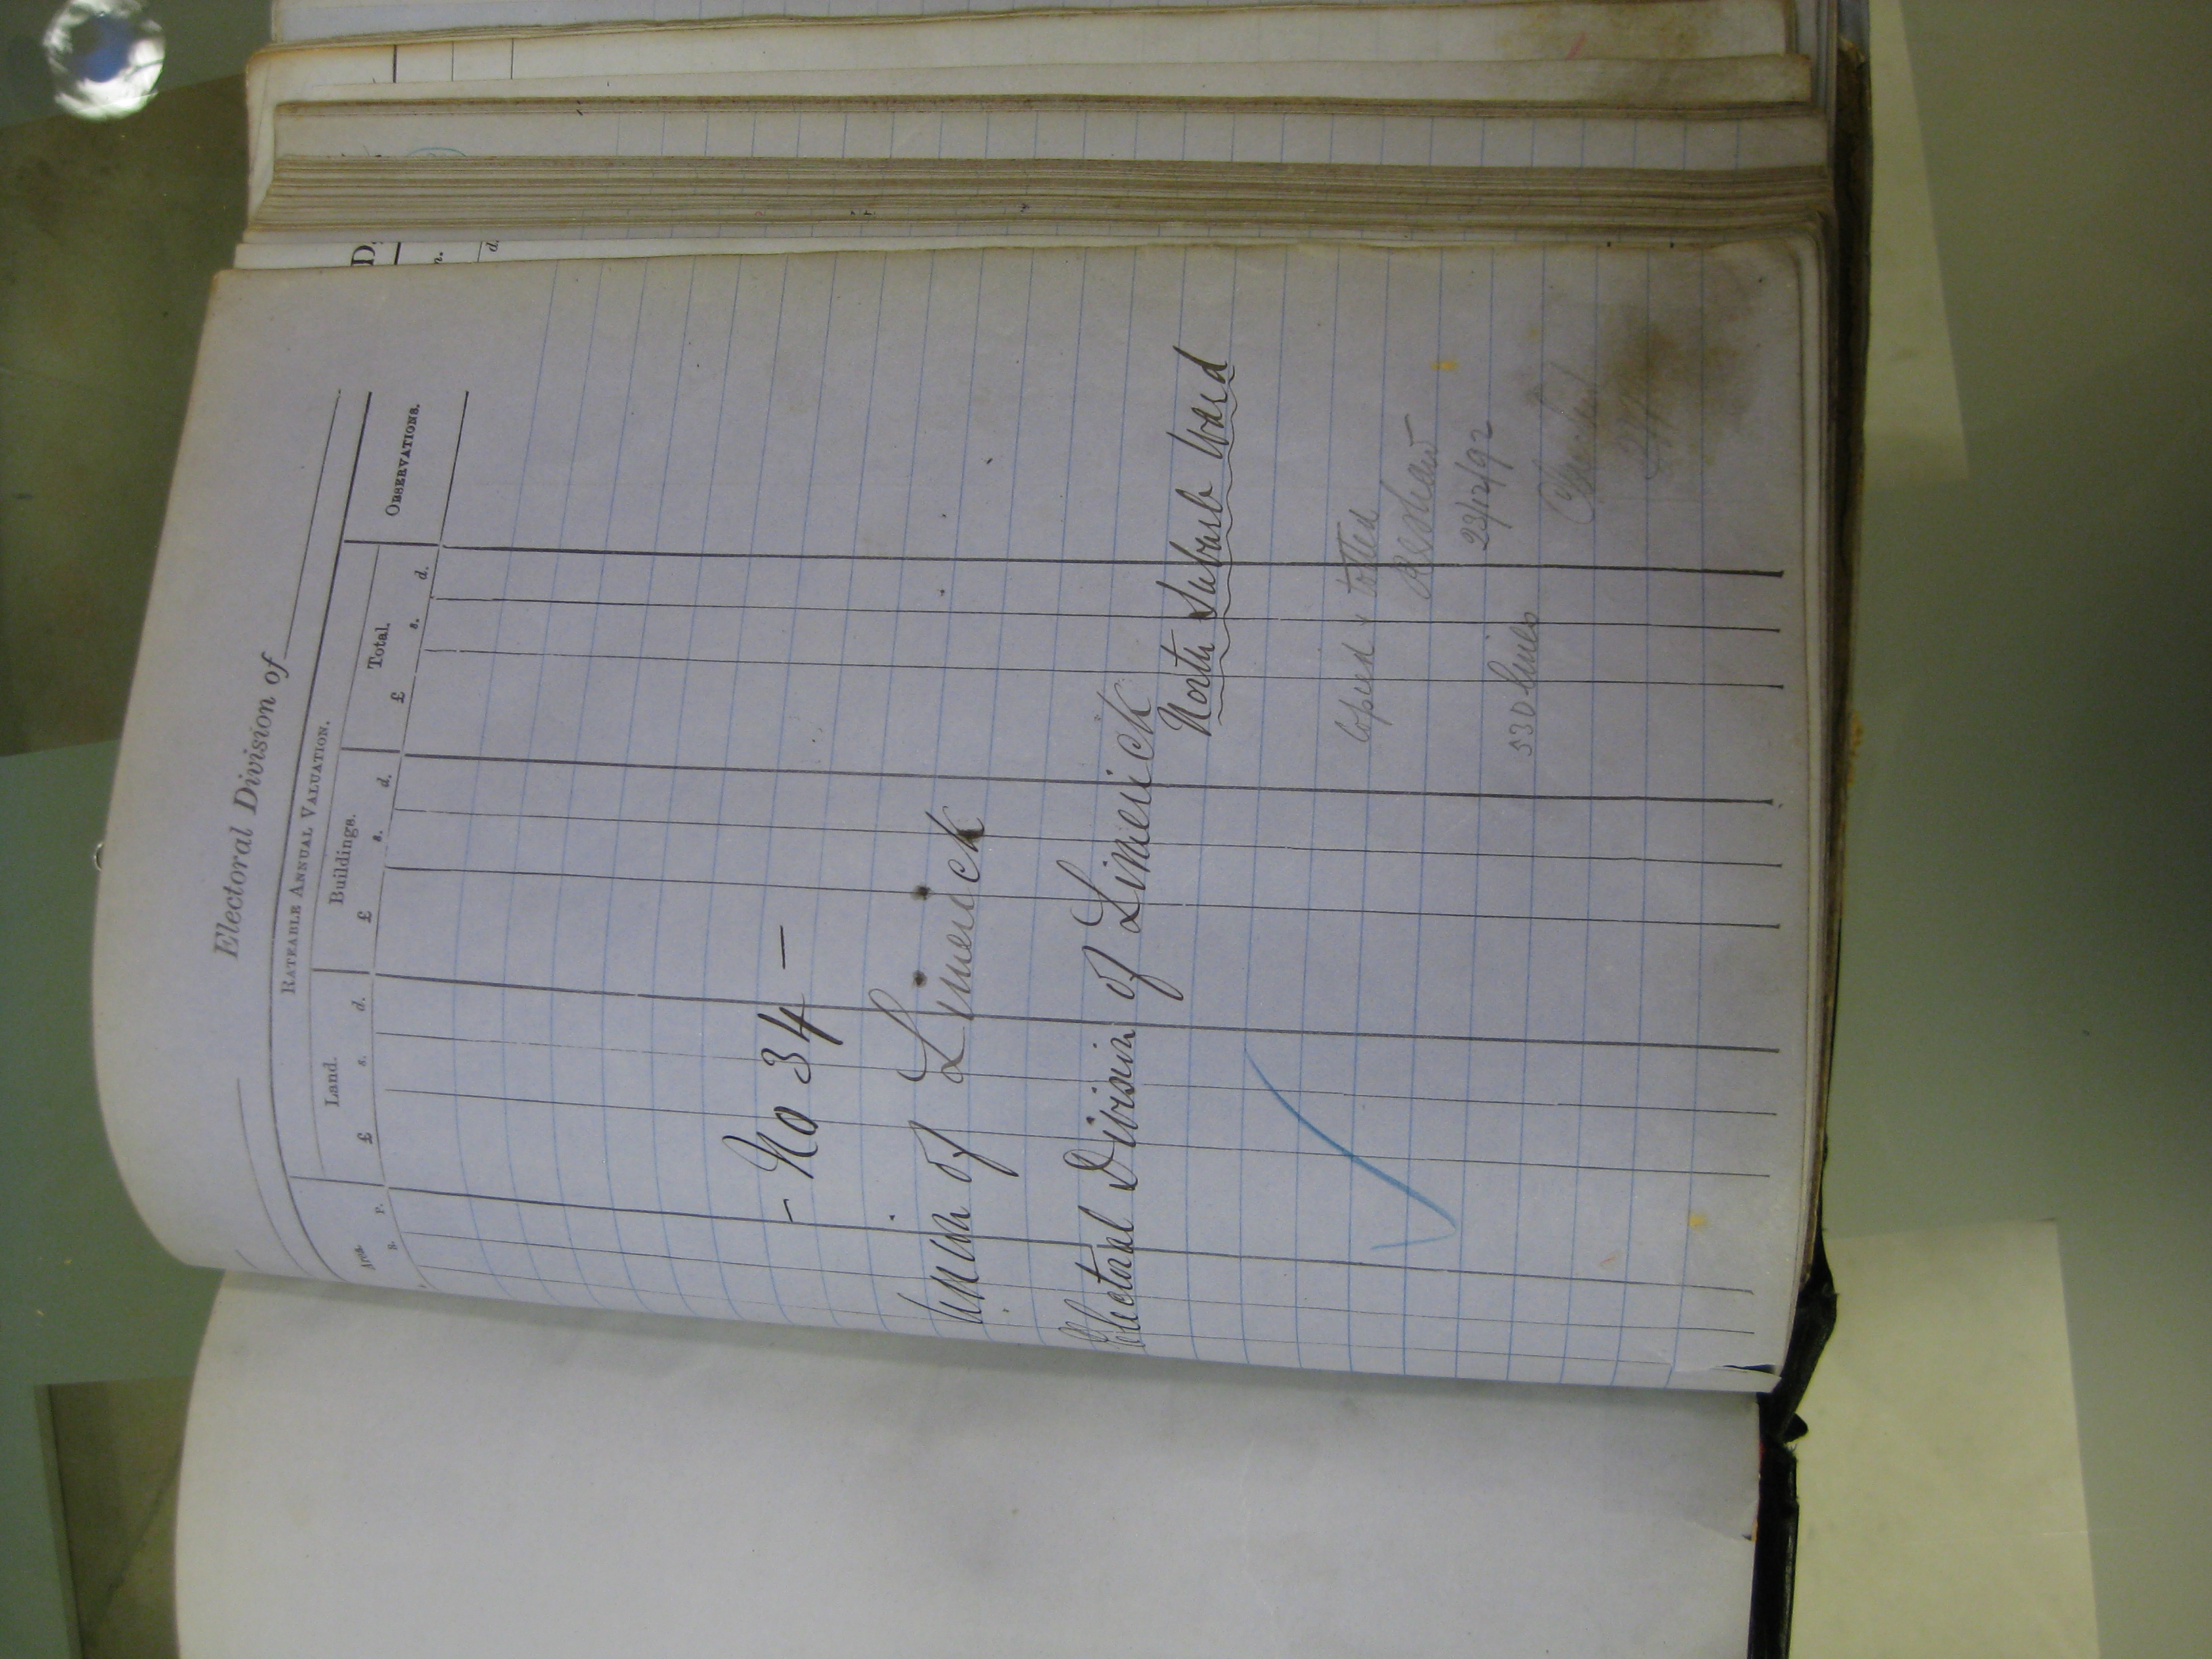 Electoral Division of
RATEABLE ANNUAL VALUATION.
Area. Land. Buildings. Total. OBSERVATIONS.
R. P. £ s. d. £ s. d. £ s. d.
- No 34 -
Union of Limerick
Electoral Division of Limerick
North Suburb Ward
Copied & totted
23/12/92
530 lines
D
d.